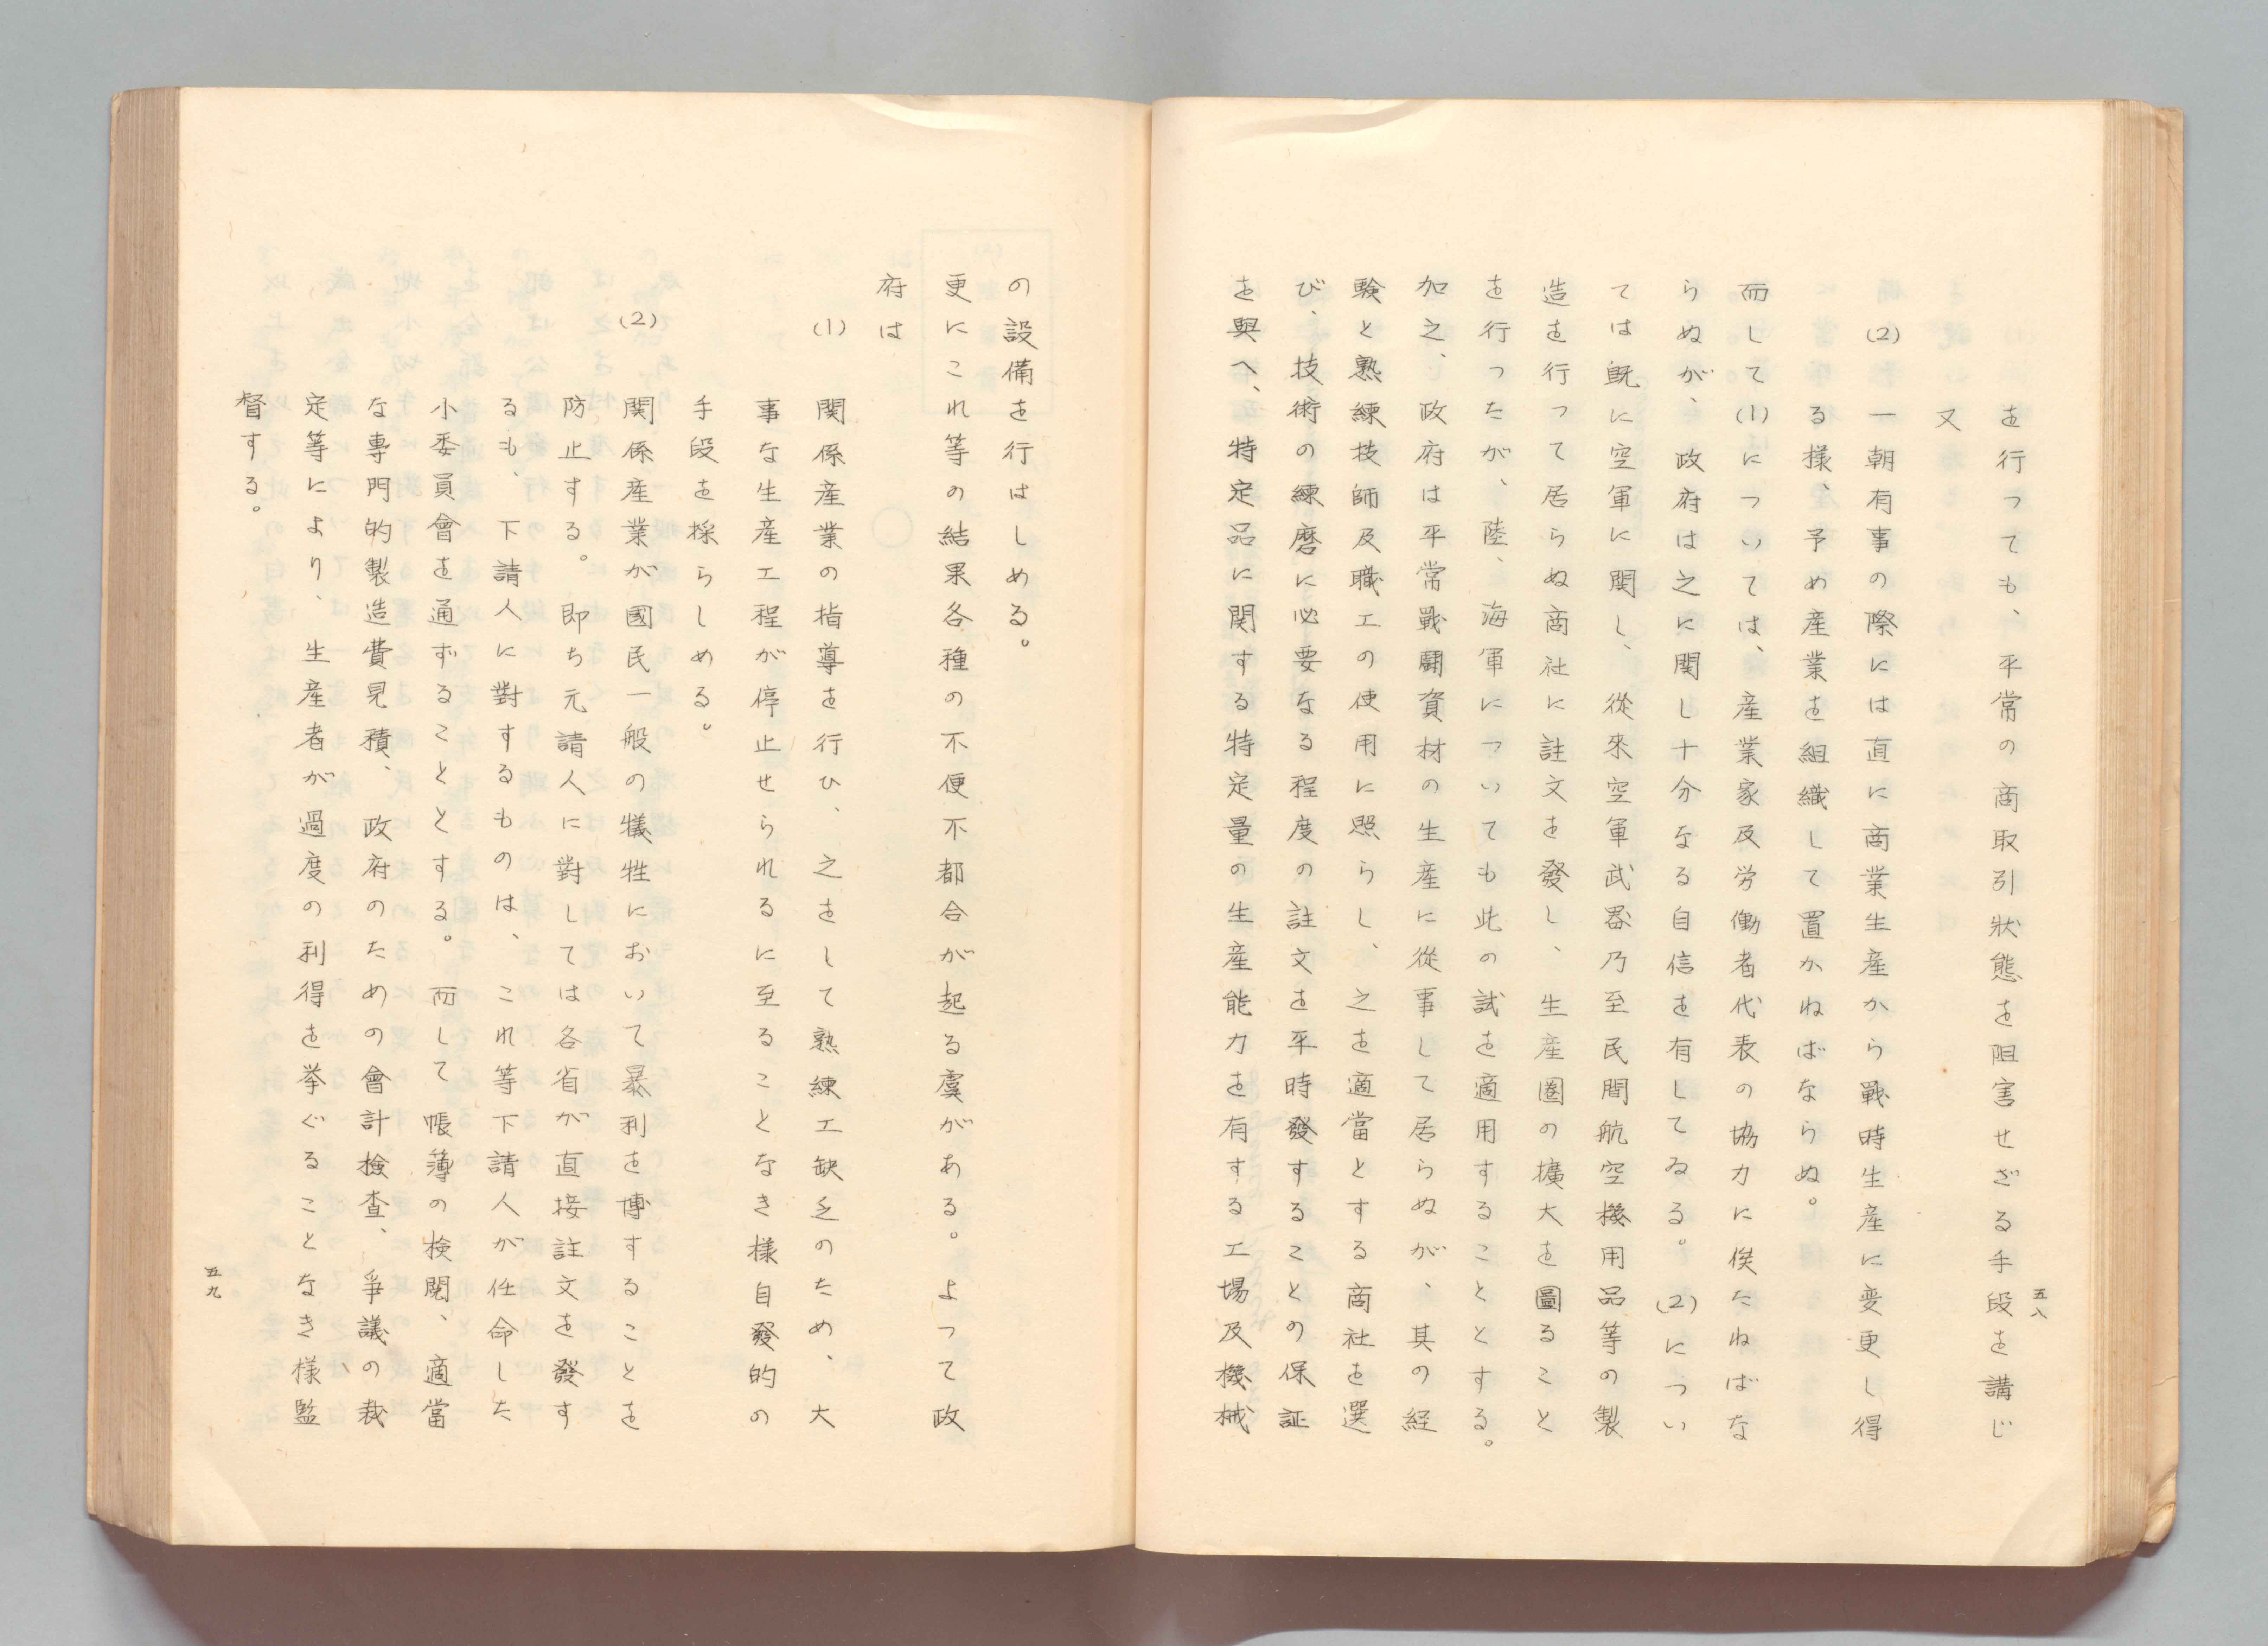 五八
を行っても、平常の商取引狀態を阻害せざる手段を講じ
又
(2) 一朝有事の際には直に商業生産から戰時生産に変更し得
る樣、予め産業を組織して置かねばならぬ。
而して(1)については、産業家及労働者代表の協力に俟たねばな
らぬが、政府は之に関し十分なる自信を有してゐる。(2)につい
ては既に空軍に関し、従來空軍武器乃至民間航空機用品等の製
造を行って居らぬ商社に註文を發し、生産圏の擴大を圖ること
を行ったが、陸、海軍についても此の試を適用することとする。
加之、政府は平常戰鬪資材の生産に從事して居らぬが、其の経
験と熟練技師及職工の使用に照らし、之を適當とする商社を選
び、技術の練磨に必要なる程度の註文を平時發することの保証
を與へ、特定品に関する特定量の生産能力を有する工場及機械
の設備を行はしめる。
更にこれ等の結果各種の不便不都合が起る虞がある。よって政
府は
(1) 関係産業の指導を行ひ、之をして熟練工缺乏のため、大
事な生産工程が停止せられるに至ることなき樣自發的の
手段を採らしめる。
(2) 関係産業が國民一般の犠牲において暴利を博することを
防止する。即ち元請人に對しては各省が直接註文を發す
るも、下請人に對するものは、これ等下請人が任命した
小委員會を通ずることとする。而して帳簿の検閲、適當
な專門的製造費見積、政府のための會計検査、爭議の裁
定等により、生産者が過度の利得を挙ぐることなき樣監
督する。
五九